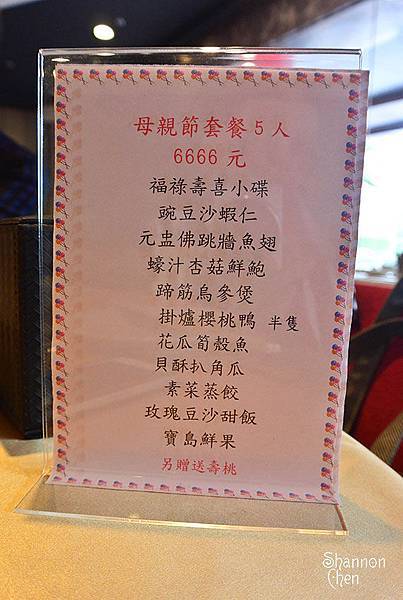 母親節套餐5人
6666元
福祿壽喜小碟
豌豆沙蝦仁
元盅佛跳牆魚翅
蠔汁杏菇鮮鮑
蹄筋烏參煲
掛爐櫻桃鴨 半隻
花瓜筍殼魚
貝酥扒角瓜
素菜蒸餃
玫瑰豆沙甜飯
寶島鮮果
另贈送壽桃
Shannon
Chen